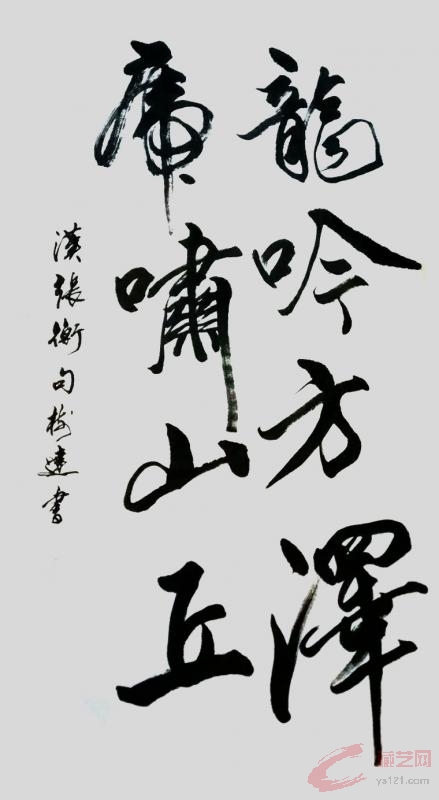 龍吟方澤
虎嘯山丘
漢張衡句樹達書
藝艺网
ya121.com